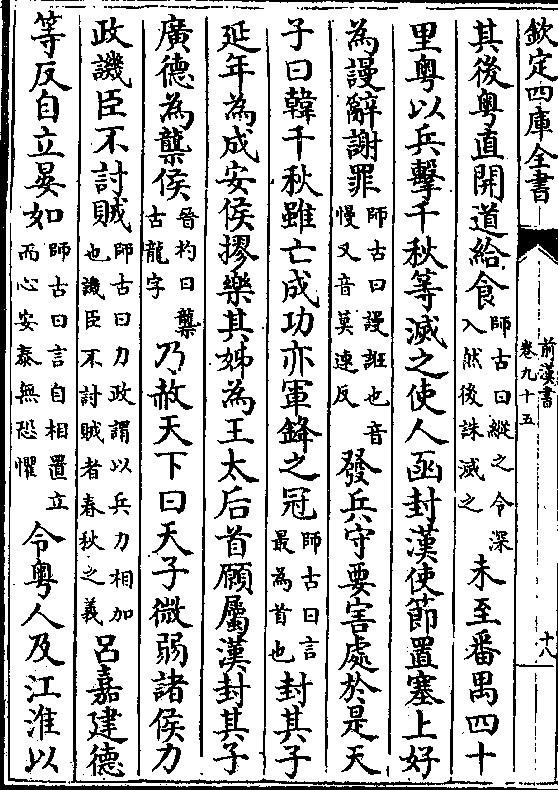 欽定四庫全書
前漢書
卷九十五
十八
其後粤直開道給食師古曰縱之令深入然後誅滅之未至番禺四十
里粤以兵擊千秋等滅之使人函封漢使節置塞上好
為謾辭謝罪師古曰謾誑也音慢又音莫連反發兵守要害處於是天
子曰韓千秋雖亡成功亦軍鋒之冠師古曰言最為首也封其子
延年為成安侯摎樂其姊為王太后首願屬漢封其子
廣德為龒侯晉灼曰龒古龍字乃赦天下曰天子微弱諸侯力
政譏臣不討賊師古曰力政謂以兵力相加也譏臣不討賊者春秋之義呂嘉建德
等反自立晏如師古曰言自相置立而心安泰無恐懼令粤人及江淮以